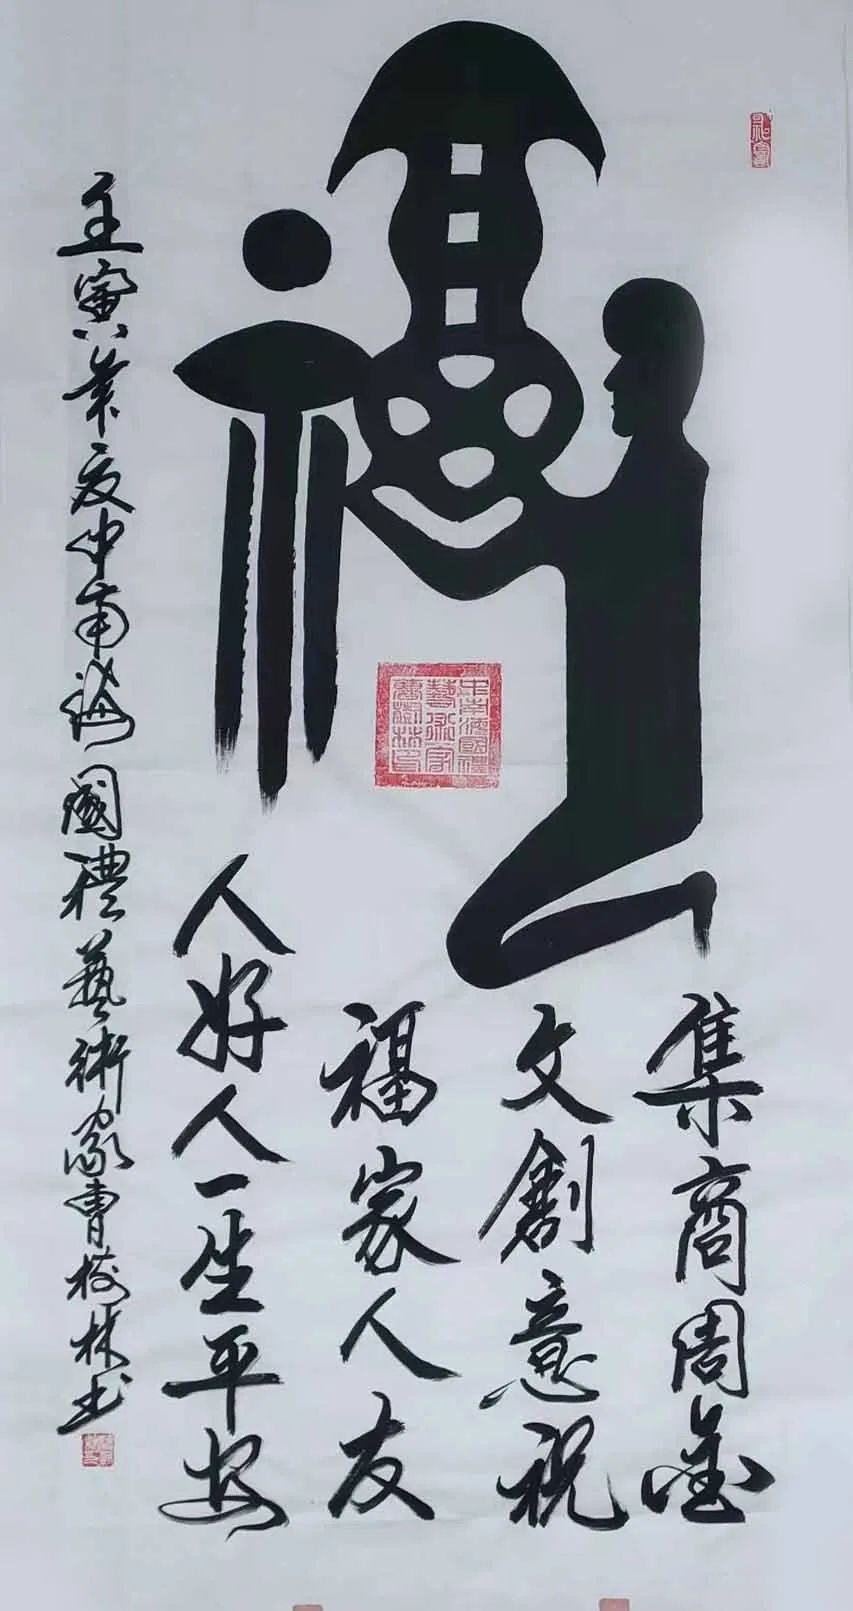 福
集商周金
文創意祝
福家人友
人好人一生平安
壬寅夏中南海國禮藝術家曹树林书
中南海國禮
藝術家
曹樹林印